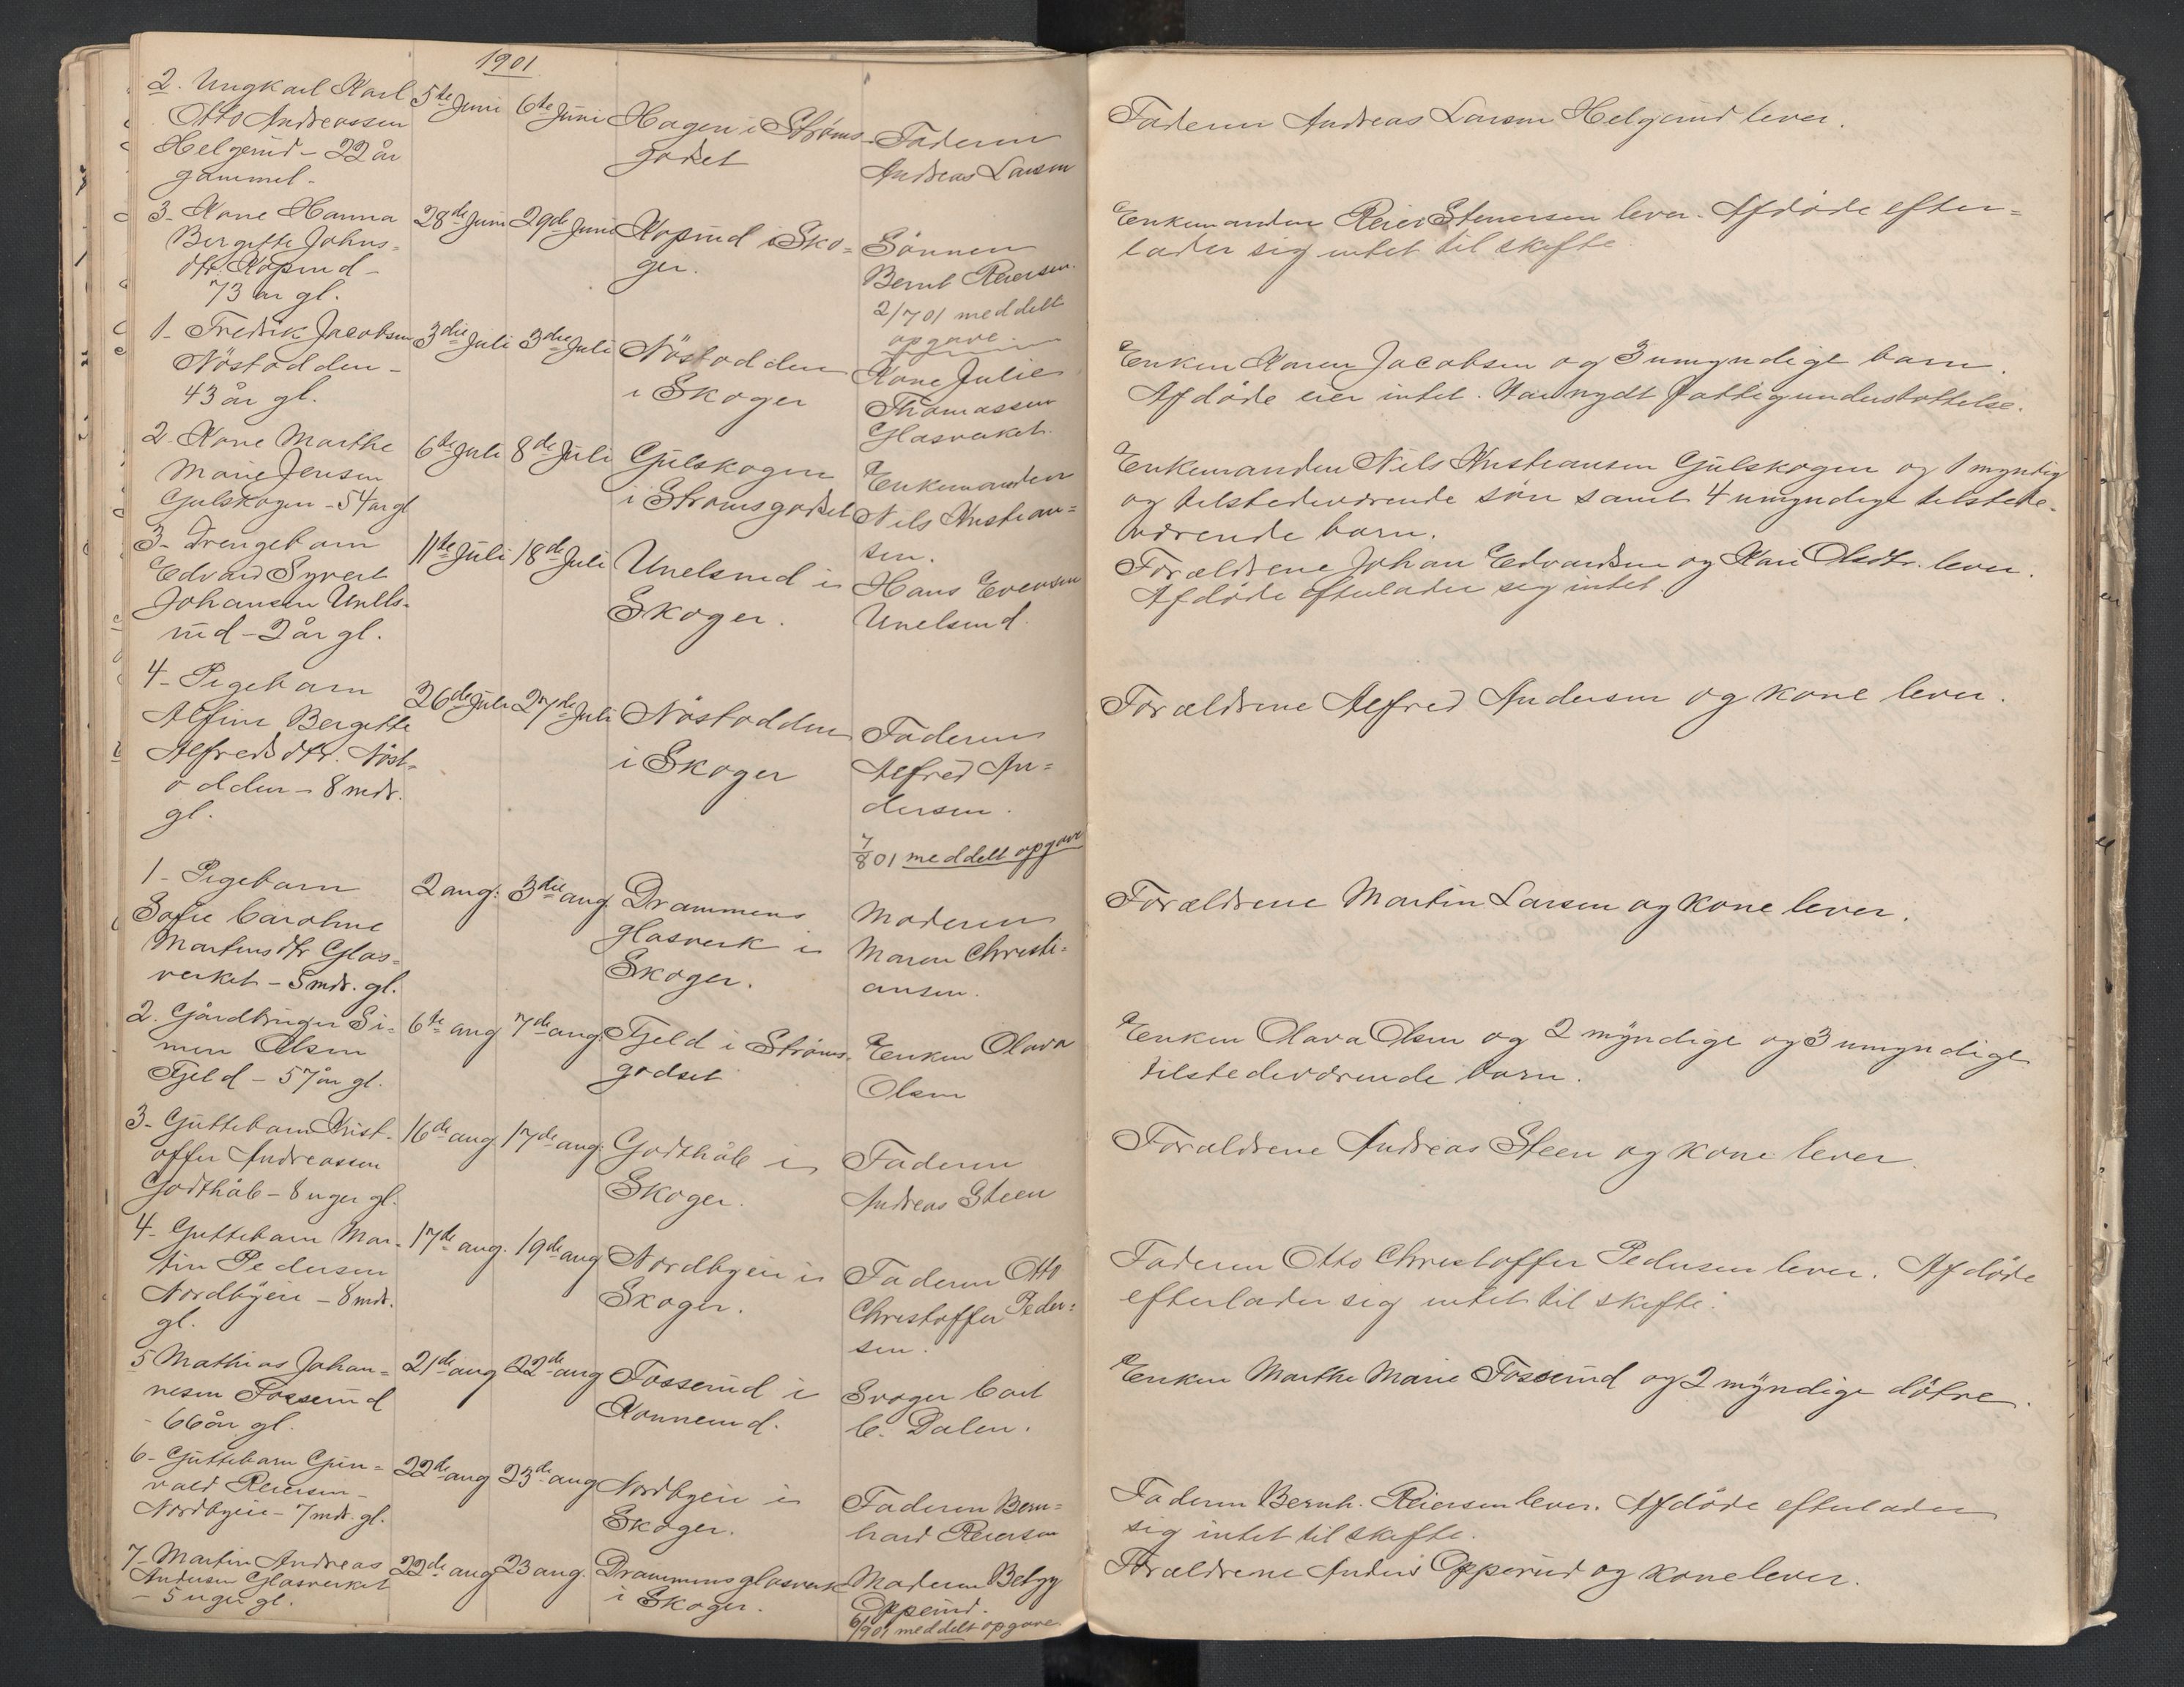 1901
2. Ungkarl Karl
Otto Andreassen
Helgerud - 22 år
gammel -
5te Juni
6te Juni
Hagen i Strøms-
godset
Faderen
Andreas Larsen
Faderen Andreas Larsen Helgerud lever.
3- Kone Hanna
Bergitte Johns-
dtr. Koprud -
73 år gl.
28de Juni
29de Juni
Koprud i Sko-
ger.
Sønnen
Bernt Reiersen.
2/7 01 meddelt
opgave.
Enkemanden Reier Stenersen lever. Afdøde efter-
lader sig intet til skifte.
1- Fredrik Jacobsen
Nöstodden -
43 år gl.
3die Juli
3die Juli
Nöstodden
i Skoger
Kone Julie
Thomassen
Glasverket.
Enken Karen Jacobsen og 3 umyndige barn.
Afdøde eier intet. Har nydt fattigunderstøttelse.
2- Kone Marthe
Marie Jensen
Gulskogen - 54 år gl
6te Juli
8de Juli
Gulskogen
i Strømsgodset
Enkemanden
Nils Kristian-
sen.
Enkemanden Nils Kristiansen Gulskogen og 1 myndig
og tilstedeværende søn samt 4 umyndige tilstede-
værende barn.
3- Drengebarn
Edvard Syvert
Johansen Unels-
rud - 2 år gl.
11te Juli
18de Juli
Unelsrud i
Skoger.
Hans Evensen
Unelsrud.
Forældrene Johan Edvardsen og Kari Olsdtr. lever.
Afdøde efterlader sig intet.
4- Pigebarn
Alfine Bergitte
Alfredsdtr. Nöst-
odden - 8 mdr.
gl.
26de Juli
27de Juli
Nöstodden
i Skoger
Faderen
Alfred An-
dersen.
7/8 01 meddelt opgave
Forældrene Alfred Andersen og kone lever.
1- Pigebarn
Sofie Caroline
Martinsdtr Glas-
verket - 5 mdr. gl.
2 aug.
3die aug.
Drammens
glasverk i
Skoger.
Moderen
Maren Christi-
ansen.
Forældrene Martin Larsen og kone lever.
2. Gårdbruger Si-
men Olsen
Fjeld - 57 år gl.
6te aug
7de aug.
Fjeld i Strøms-
godset
Enken Olava
Olsen
Enken Olava Olsen og 2 myndige og 3 umyndige
tilstedeværende barn.
3- Guttebarn Krist-
offer Andreassen
Godthåb - 8 uger gl.
16de aug.
17de aug.
Godthåb i
Skoger.
Faderen
Andreas Steen
Forældrene Andreas Steen og kone lever.
4- Guttebarn Mar-
tin Pedersen
Nordbyeie - 8 mdr.
gl.
17de aug.
19de aug
Nordbyeie i
Skoger.
Faderen Otto
Christoffer Peder-
sen.
Faderen Otto Christoffer Pedersen lever. Afdøde
efterlader sig intet til skifte.
5 Mathias Johan-
nesen Fosserud
- 66 år gl.
21de aug
22de aug
Fosserud i
Konnerud.
Svoger Carl
C. Dalen.
Enken Marthe Marie Fosserud og 2 myndige døtre.
6- Guttebarn Gun-
vald Reiersen -
Nordbyeie - 7 mdr. gl.
22de aug
23de aug
Nordbyeie i
Skoger.
Faderen Bern-
hard Reiersen
Faderen Bernh. Reiersen lever. Afdøde efterlader
sig intet til skifte.
7- Martin Andreas
Andersen Glasverket
- 5 uger gl.
22de aug
23 aug.
Drammens glasverk
i Skoger.
Moderen Betzy
Opperud.
6/9 01 meddelt opgave
Forældrene Anders Opperud og kone lever.